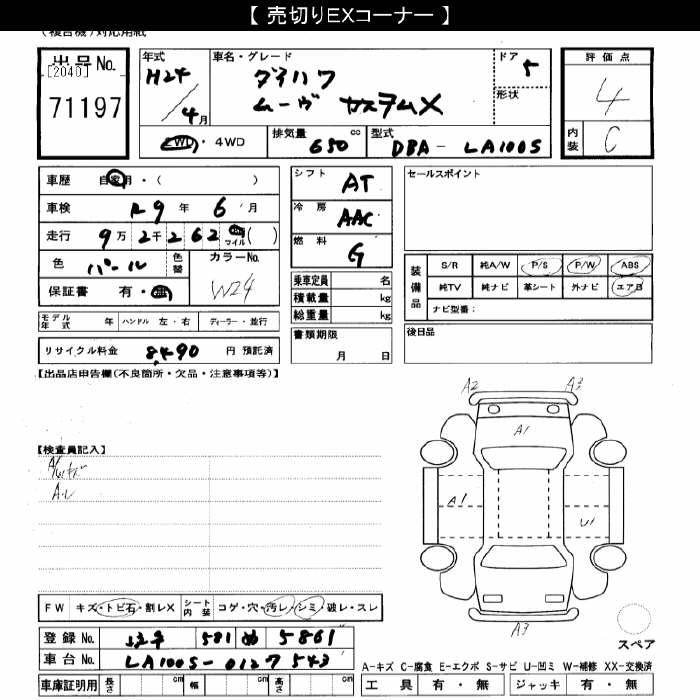 【 売切りEXコーナー 】
(複合機)対応用紙
出品No.
[2040]
71197
年式
H24
4月
車名・グレード
ダイハツ
ムーヴ カスタムX
ドア
5
形状
2WD・4WD
排気量
650 cc
型式
DBA-LA100S
評価点
4
内装
C
車歴 自家用・( )
車検 R9年 6月
走行 9万2千262 km マイル( )
色 パール
色替
カラーNo.
W24
保証書 有・無
モデル年式 年
ハンドル 左・右
ディーラー・並行
リサイクル料金 8,490 円 預託済
シフト AT
冷房 AAC
燃料 G
乗車定員 名
積載量 kg
総重量 kg
書類期限
月 日
セールスポイント
装備品
S/R 純A/W P/S P/W ABS
純TV 純ナビ 革シート 外ナビ エアB
ナビ型番:
後日品
【出品店申告欄(不良箇所・欠品・注意事項等)】
【検査員記入】
A2 A3
A1
A1
U1
A3
スペア
FW キズ・トビ石・割レX
シート内装 コゲ・穴・汚レ・シミ・破レ・スレ
登録No. 581 5861
車台No. LA100S-0127543
車庫証明用 長さ cm 幅 cm 高さ cm
A-キズ C-腐食 E-エクボ S-サビ U-凹ミ W-補修 XX-交換済
工具 有・無 ジャッキ 有・無